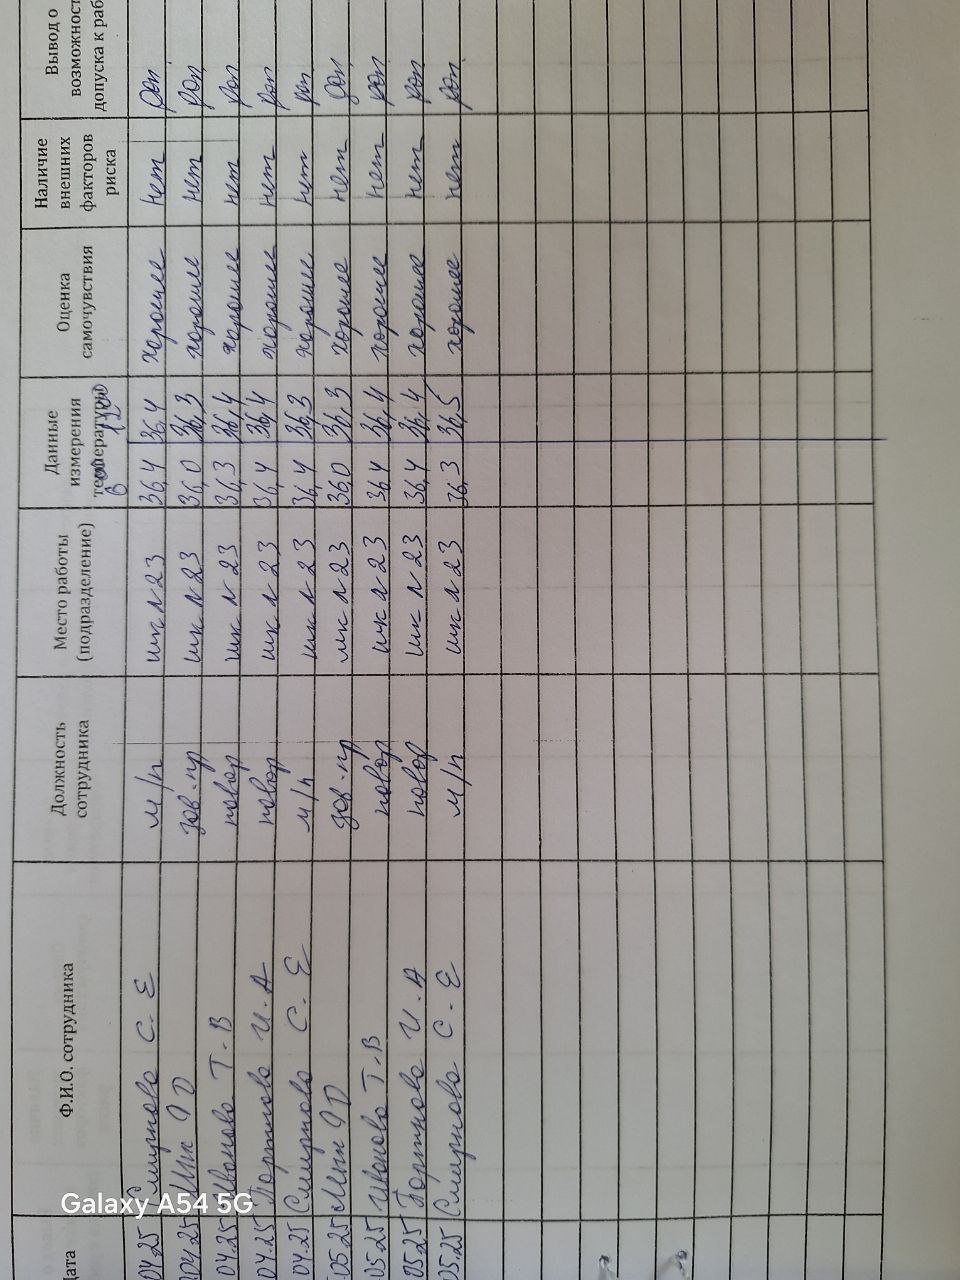 Дата Ф.И.О. сотрудника Должность сотрудника Место работы (подразделение) Данные измерения температуры Оценка самочувствия Наличие внешних факторов риска Вывод о возможност допуска к раб
04.25 Смирнова С. Е м/п шк N 23 36,4 36,4 хорошее нет доп
04.25 Мин зав-пр шк N 23 36,0 36,3 хорошее нет доп
04.25 Иванова Т. В повар шк N 23 36,3 36,4 хорошее нет доп
04.25 И. А повар шк N 23 36,4 36,4 хорошее нет доп
04.25 Смирнова С. Е м/п шк N 23 36,4 36,3 хорошее нет доп
05.25 Мин зав-пр шк N 23 36,0 36,3 хорошее нет доп
05.25 Иванова Т. В повар шк N 23 36,4 36,4 хорошее нет доп
05.25 И. А повар шк N 23 36,4 36,4 хорошее нет доп
05.25 Смирнова С. Е м/п шк N 23 36,3 36,5 хорошее нет доп
Galaxy A54 5G